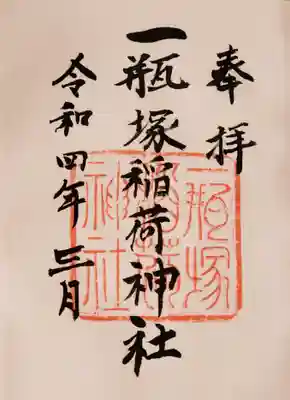 奉拝
一瓶塚稲荷神社
令和四年三月
一瓶塚稲荷神社